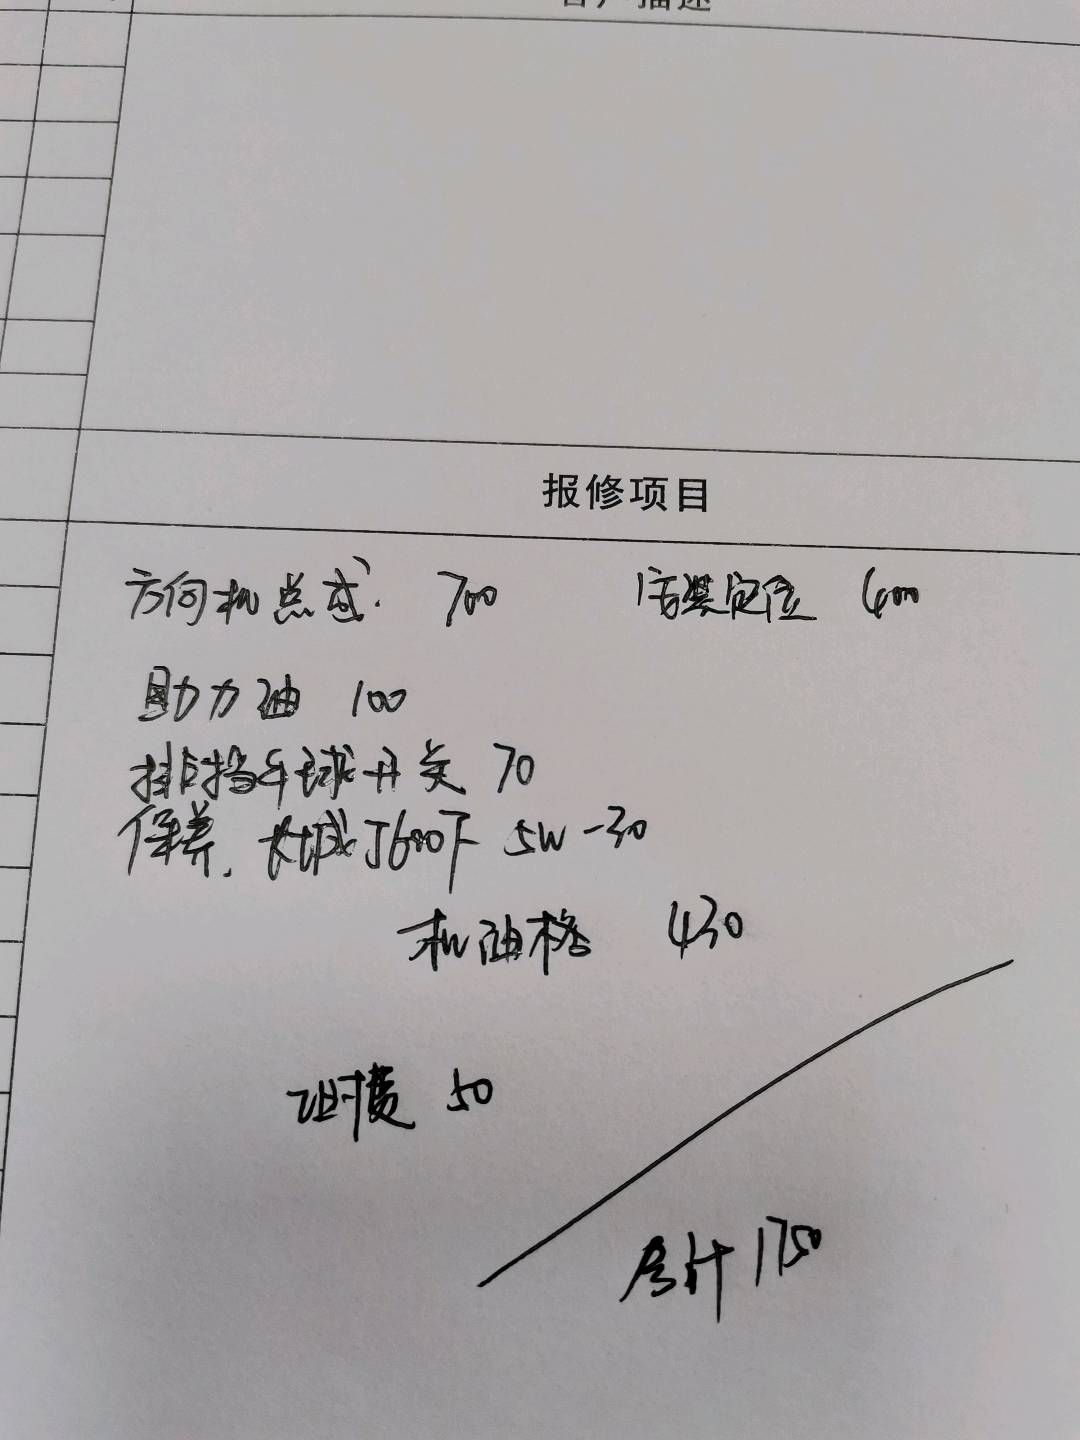 客户描述
报修项目
方向机总成. 700 装定位 400
助力油 100
排挡手球开关 70
保养. 长城J600F 5W-30
机油格 430
工时费 50
合计 1750